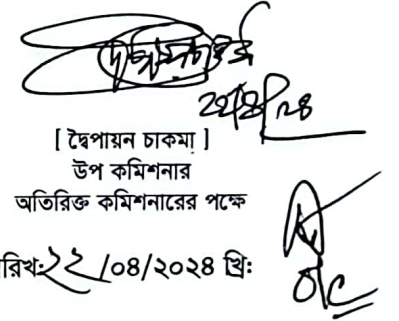 ২২/৪/২৪
[ দ্বৈপায়ন চাকমা ]
উপ কমিশনার
অতিরিক্ত কমিশনারের পক্ষে
রিখ: ২২/০৪/২০২৪ খ্রি: